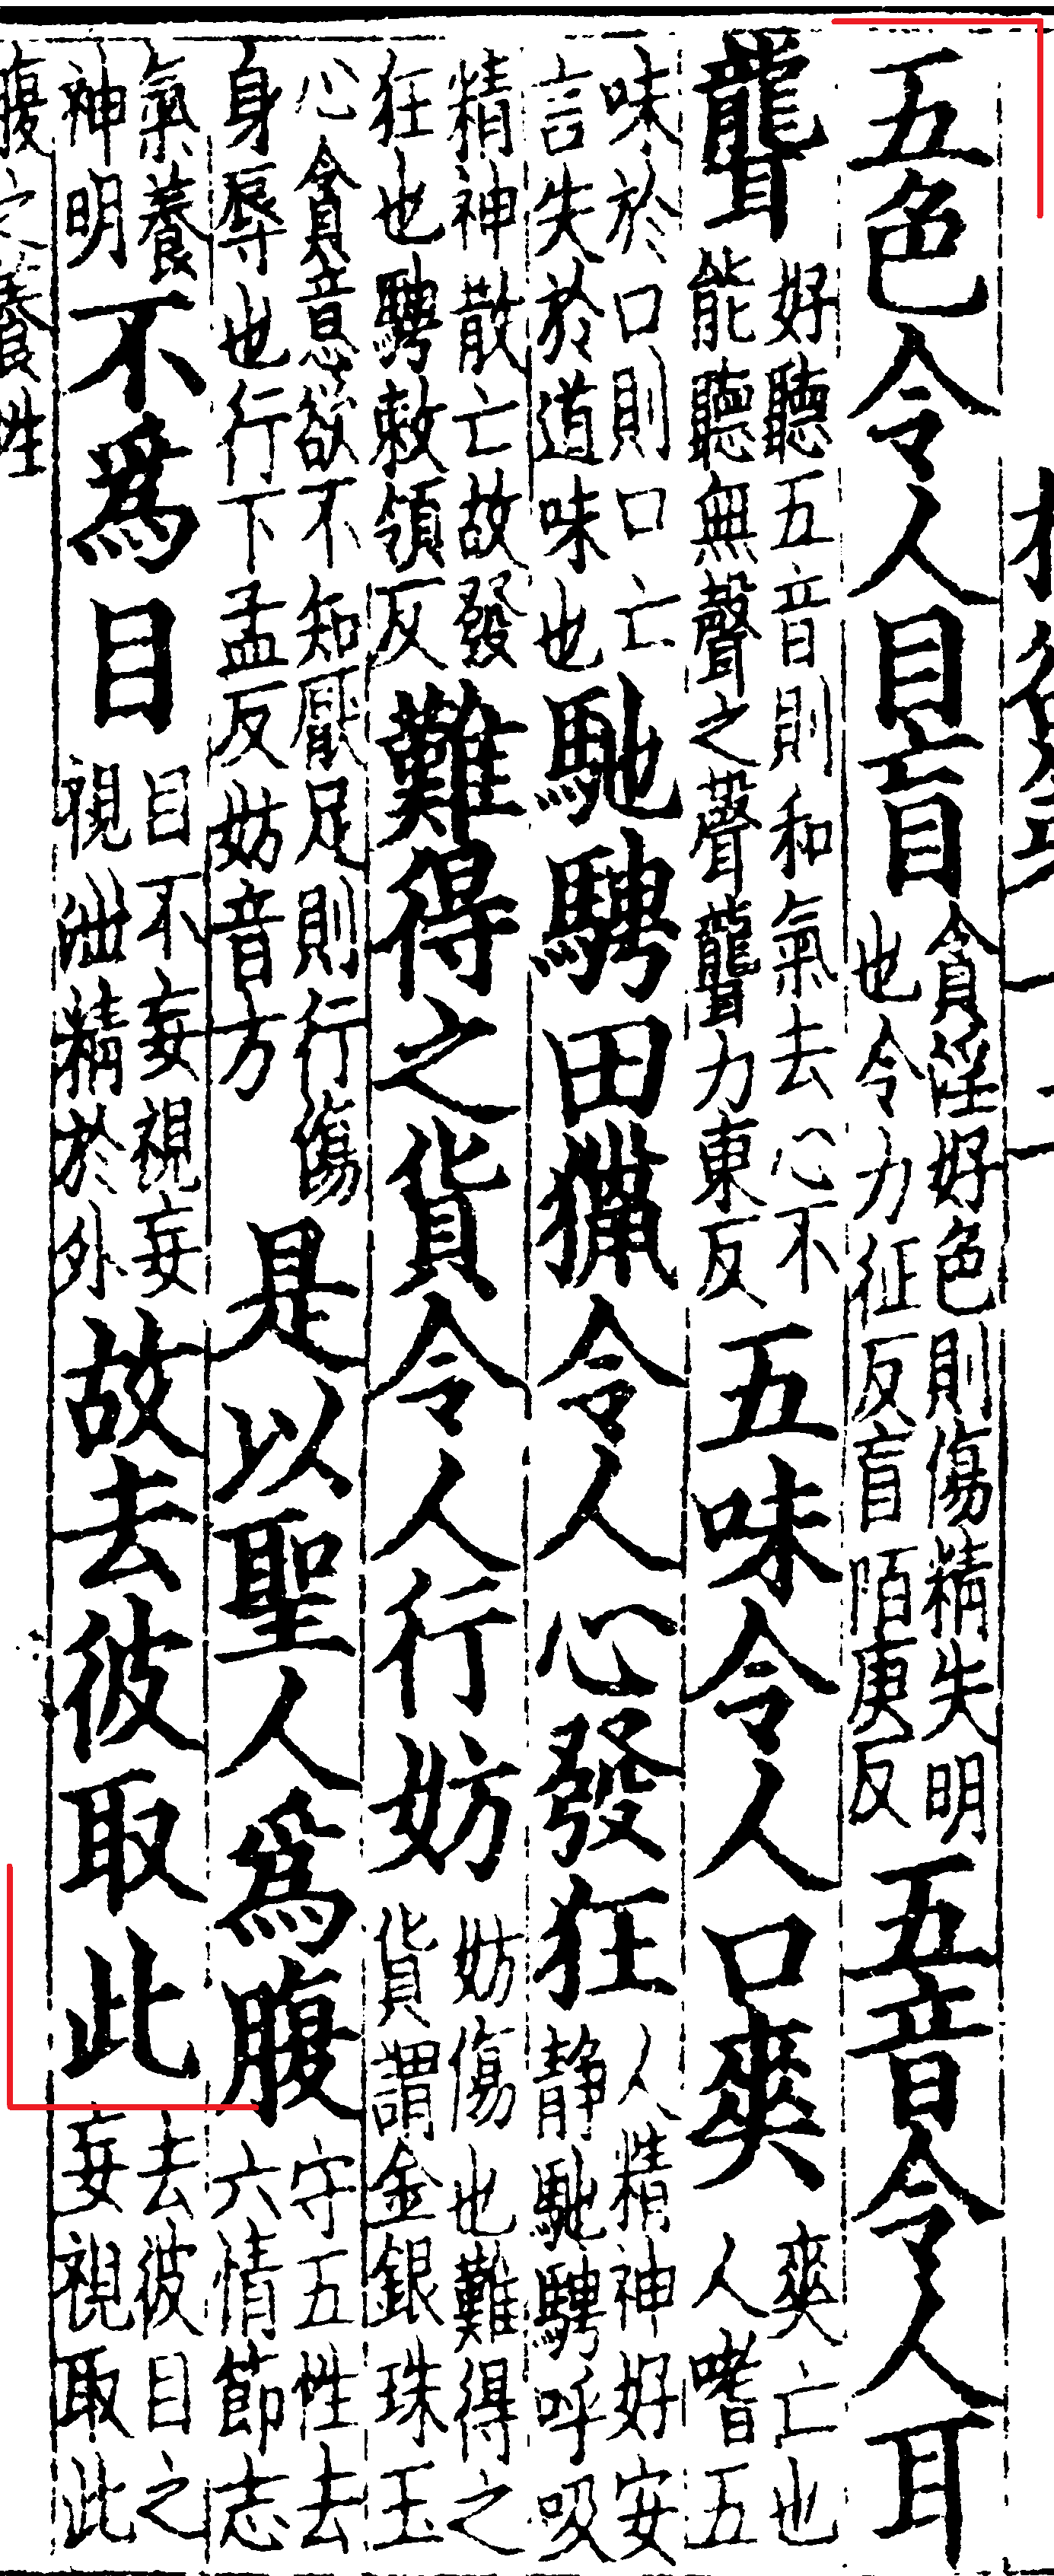 五色令人目盲貪淫好色則傷精失明也令力征反盲陌庚反五音令人耳
聾好聽五音則和氣去心不能聽無聲之聲聾力東反五味令人口爽爽亡也人嗜五
味於口則口亡言失於道味也馳騁田獵令人心發狂人精神好安静馳騁呼吸
精神散亡故發狂也騁敕領反難得之貨令人行妨妨傷也難得之貨謂金銀珠玉
心貪意欲不知厭足則行傷身辱也行下孟反妨音方是以聖人爲腹守五性去六情節志
氣養神明不爲目目不妄視妄視泄精於外故去彼取此去彼目之妄視取此
腹之養性